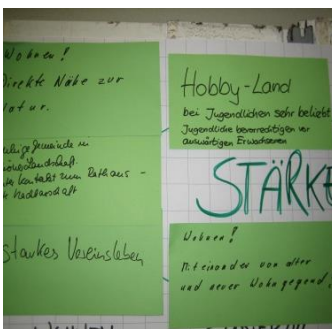 Wohnen!
Direkte Nähe zur
Natur.
gemeinde in
Landschaft.
Kontakt zum Rathaus -
Nachbarschaft
Starkes Vereinsleben
Hobby-Land
bei Jugendlichen sehr beliebt
Jugendliche bevorrechtigen vor
auswärtigen Erwachsenen
STÄRKE
Wohnen!
Miteinander von alter
und neuer Wohngegend.